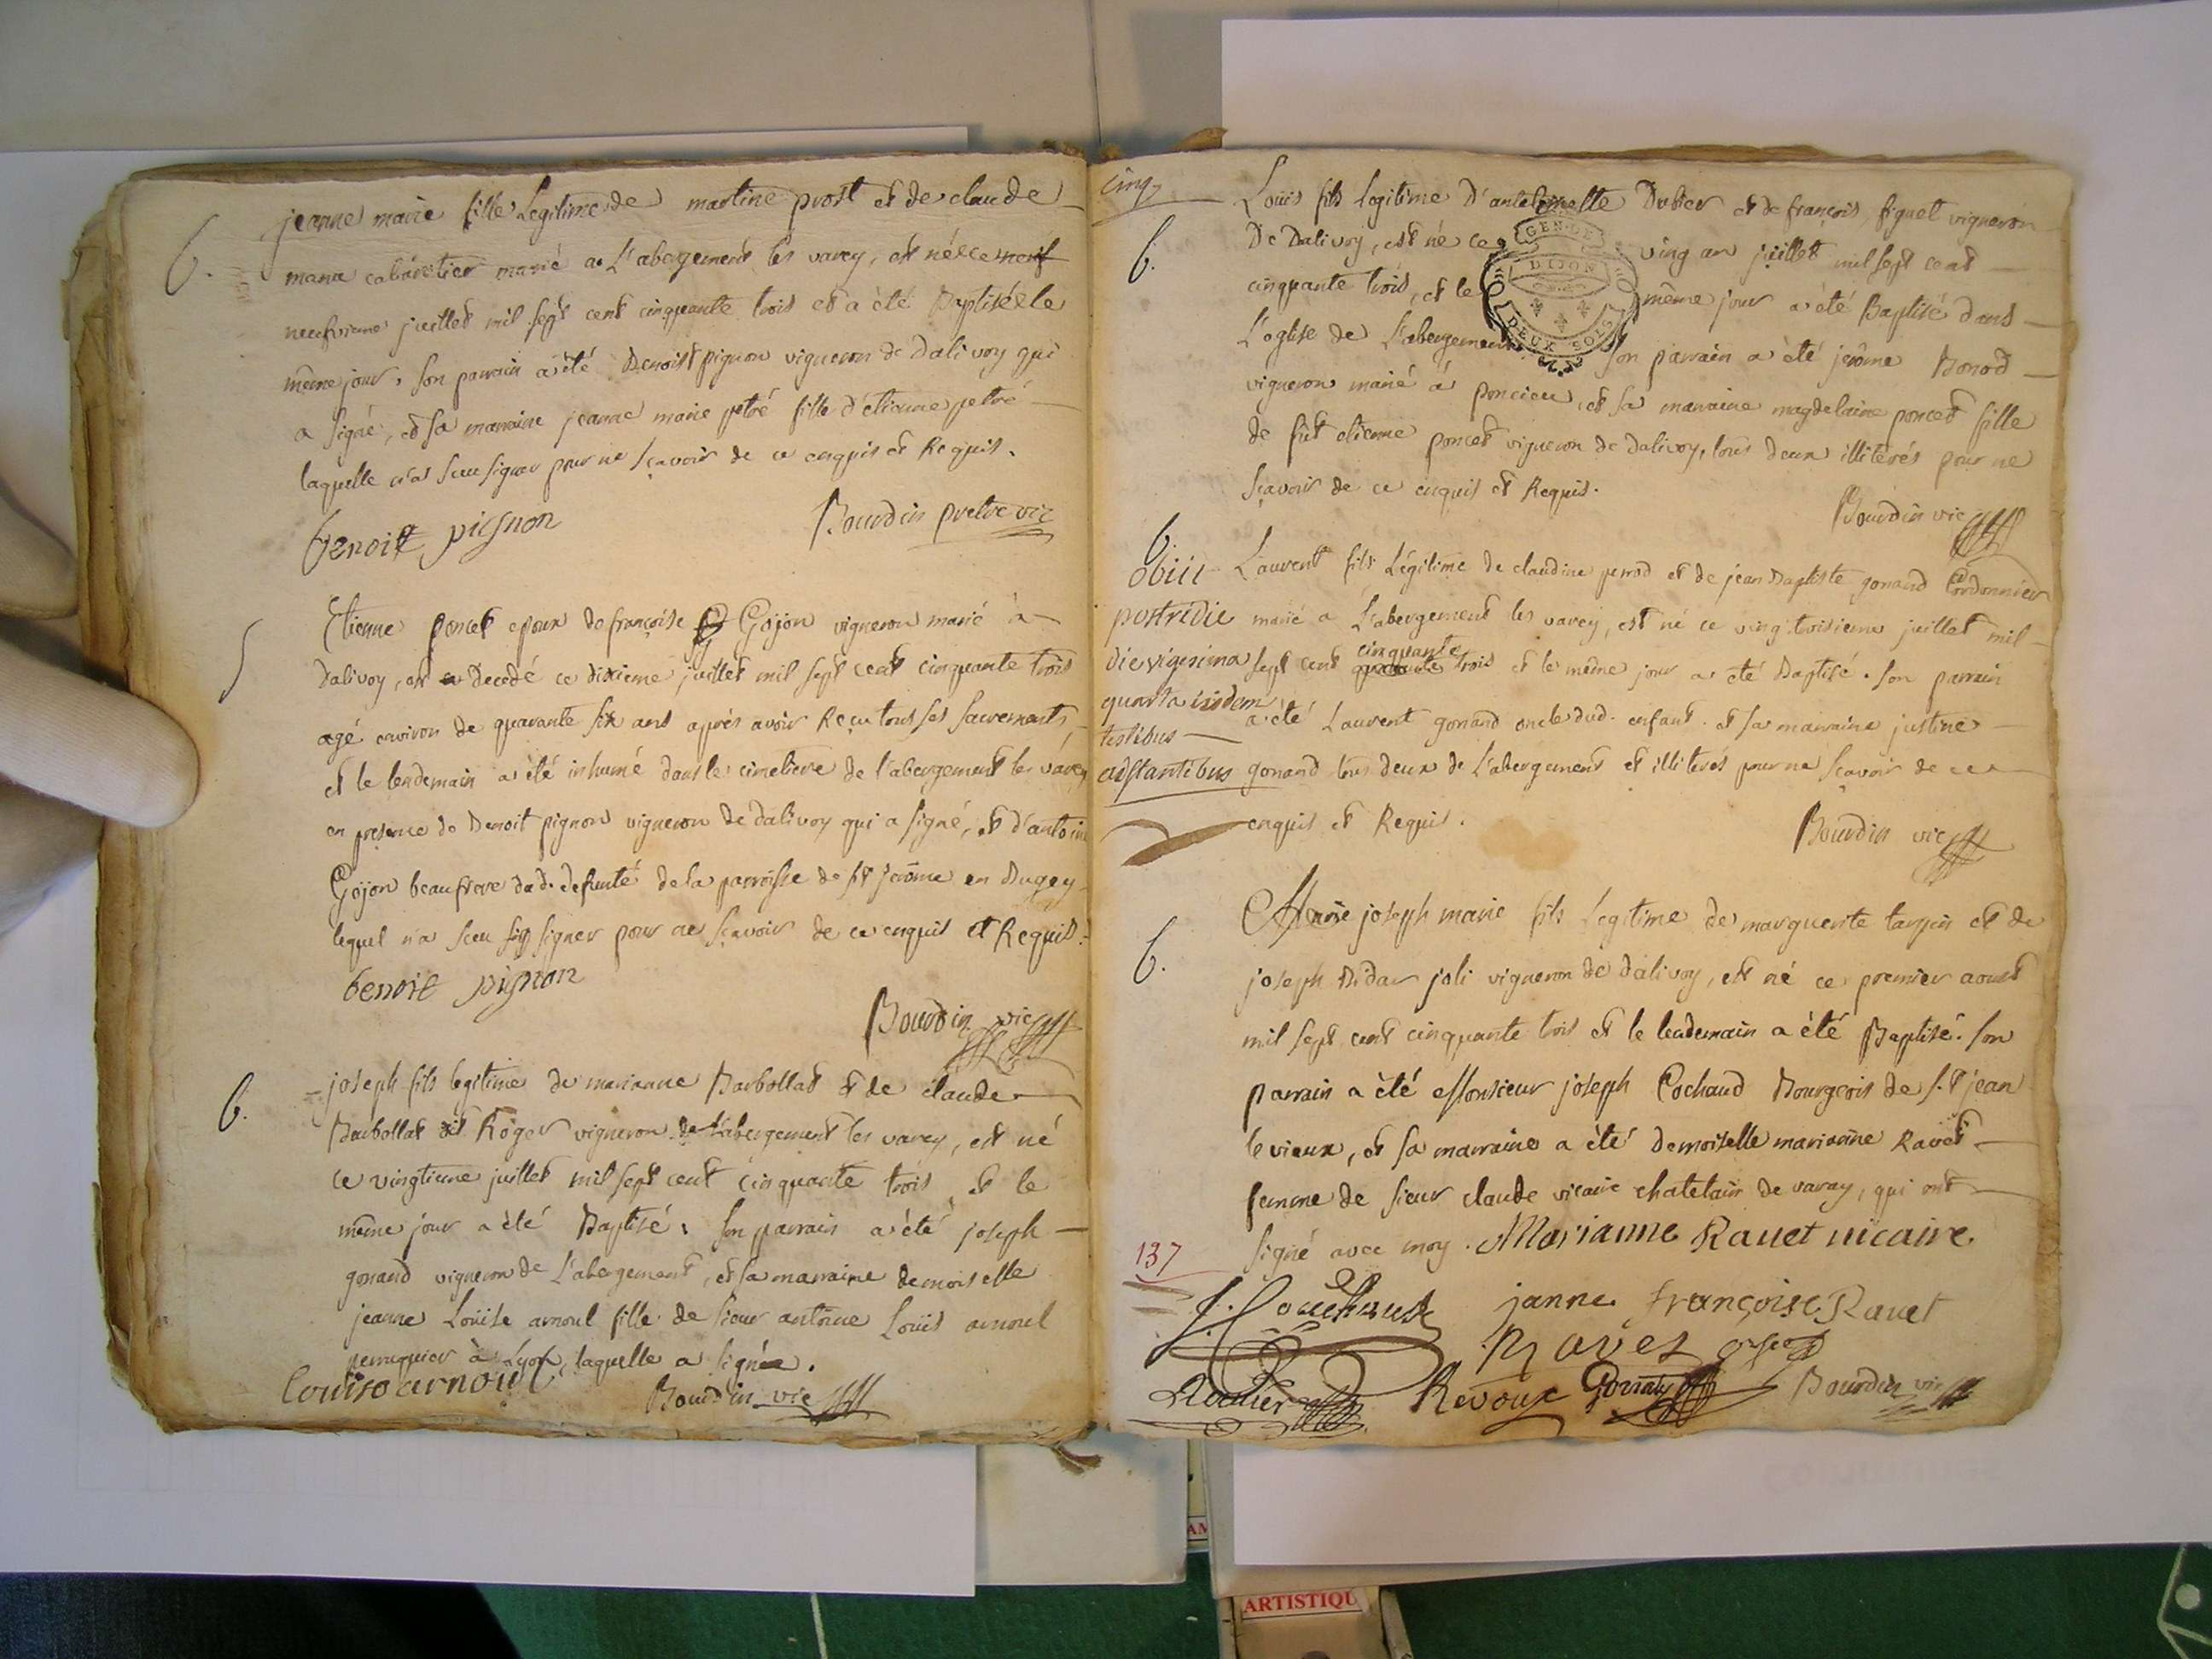 b.
jeanne marie fille Legitime de martine prost et de claude
mana cabaretier marié a L'abergement les varey, est néé ce neuf
neufvieme juillet mil sept cent cinquante trois et a été Baptiséé le
même jour, son parrain a été Benoist pignon vigneron de Dalivoy qui
a signé, et sa marraine jeanne marie petré fille d'etienne petré
laquelle n'a sceu signer pour ne sçavoir de ce enquis et Requis.
benoit pignon
Bourdin pretre vic
Etienne poncet epoux de françoise Gojon vigneron marié à
Dalivoy, est decedé ce dixieme juillet mil sept cent cinquante trois
agé environ de quarante six ans après avoir Reçu tous ses sacrements,
et le lendemain a été inhumé dans le cimetiere de l'abergement les varey
en presence de Benoit pignon vigneron de dalivoy qui a signé, et d'antoine
Gojon beaufrere dud. defunté de la parroisse de st jerôme en Bugey
lequel n'a sceu signer pour ne sçavoir de ce enquis et Requis.
benoit pignon
Bourdin vic
b.
joseph fils legitime de marianne Barbollat et de claude
Barbollat dit Roger vigneron de L'abergement les varey, est né
ce vingtieme juillet mil sept cent cinquante trois et le
même jour a été Baptisé; son parrain a été joseph
gonand vigneron de L'abergement, et sa marraine demoiselle
jeanne Loüise arnoul fille de sieur antoine Loüis arnoul
perruquier à Lyon, laquelle a signé.
Louise arnoul
Bourdin vic
cinq
b.
Loüis fils legitime D'anthelmette Dubier et de françois figuet vigneron
De Dalivoy, est né ce ving un juillet mil sept cent
cinquante trois, et le même jour a été Baptisé dans
L'eglise de L'abergement son parrain a été jerôme Bonod
vigneron marié à poncieu, et sa marraine magdelaine poncet fille
de fût etienne poncet vigneron de dalivoy, tous deux illiterés pour ne
sçavoir de ce enquis et Requis.
GEN. DE
DIJON
DEUX SOLS
Bourdin vic
b.
obiit
postridie
die vigesima
quarta iisdem
testibus
adstantibus
Laurent fils Légitime de claudine perrod et de jean Baptiste gonand Cordonnier
marié a L'abergement les varey, est né ce ving troisieme juillet mil
sept cent cinquante trois et le même jour a été Baptisé. son parrain
a été Laurent gonand oncle dud. enfant. et sa marraine justine
gonand tous deux de L'abergement et illiterés pour ne sçavoir de ce
enquis et Requis.
Bourdin vic
b.
joseph marie fils Legitime de marguerite tarpin et de
joseph Bidar joli vigneron de dalivoy, est né ce premier aoust
mil sept cent cinquante trois et le lendemain a été Baptisé. son
parrain a été Monsieur joseph Cochaud Bourgeois de s.t jean
le vieux, et sa marraine a été demoiselle marianne Ravet
femme de sieur claude vicaire chatelain de varay, qui ont
signé avec moy. Marianne Rauet uicaire.
137
janne françoise Rauet
Revoux
Bourdin vic
ARTISTIQU